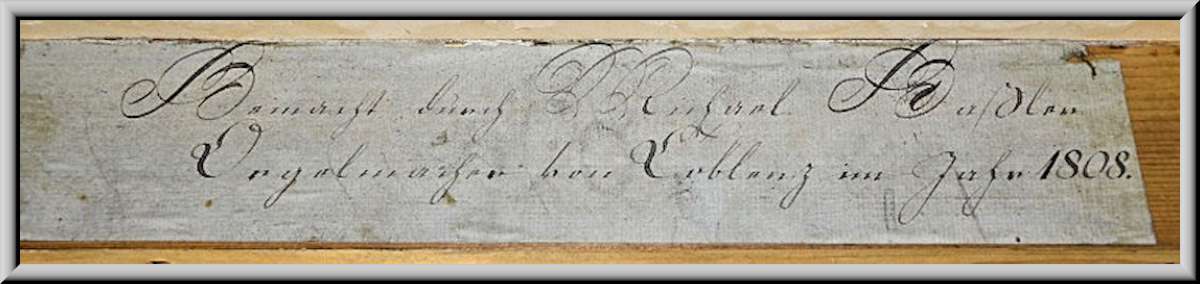 Gemacht durch Michael
Orgelmacher von Coblenz im Jahr 1808.